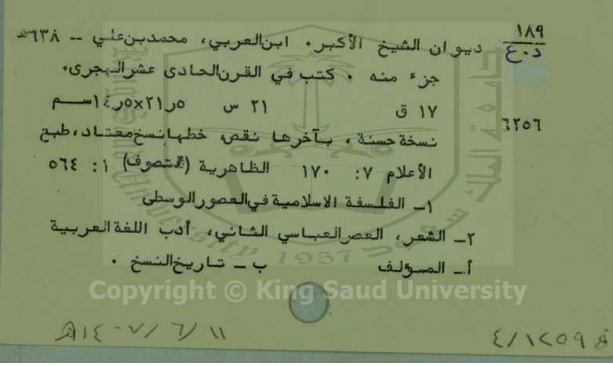 ١٨٩
د٠ع
ديوان الشيخ الأكبر٠ ابن العربي، محمد بن علي -- ٦٣٨هـ
جزء منه ٠ كتب في القرن الحادى عشر الهجرى٠
١٧ ق ٢١ س ٥ر٢١×٥ر١٤ سم
٦٢٥٦
نسخة حسنة ، بآخرها نقص، خطها نسخ معتاد، طبع
الأعلام ٧: ١٧٠ الظاهرية (التصوف) ١: ٥٦٤
١- الفلسفة الاسلامية في العصور الوسطى
٢- الشعر، العصر العباسي الثاني، أدب اللغة العربية
أ- المؤلف ب - تاريخ النسخ ٠
1957
Copyright © King Saud University
١١/٦/١٤٠٧هـ
ف ١٢٥٩/٤